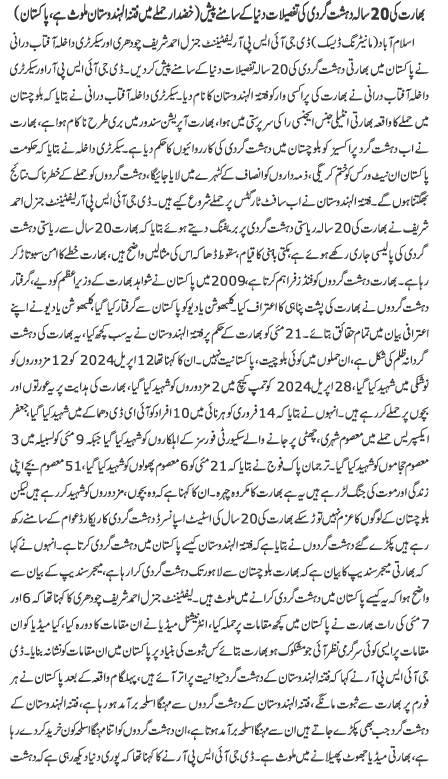 بھارت کی 20 سالہ دہشت گردی کی تفصیلات دنیا کے سامنے پیش (خضدار حملے میں فتنۃ الہندوستان ملوث ہے، پاکستان)
اسلام آباد (مانیٹرنگ ڈیسک) ڈی جی آئی ایس پی آر لیفٹیننٹ جنرل احمد شریف چودھری اور سیکرٹری داخلہ آفتاب درانی
نے پاکستان میں بھارتی دہشت گردی کی 20 سالہ تفصیلات دنیا کے سامنے پیش کر دیں۔ ڈی جی آئی ایس پی آر اور سیکرٹری
داخلہ آفتاب درانی نے بھارت کی پراکسی وار کو فتنۃ الہندوستان کا نام دیا۔ سیکرٹری داخلہ آفتاب درانی نے بتایا کہ بلوچستان
میں حملے کا واقعہ بھارتی انٹیلی جنس ایجنسی کی سرپرستی میں ہوا، بھارت آپریشن سندور میں بری طرح ناکام ہوا ہے، بھارت
نے اب دہشت گرد پراکسیز کو بلوچستان میں دہشت گردی کی کارروائیوں کا حکم دیا ہے۔ سیکرٹری داخلہ نے بتایا کہ حکومت
پاکستان ان نیٹ ورکس کو ختم کریگی، ذمہ داروں کو انصاف کے کٹہرے میں لایا جائیگا، دہشت گردوں کو حملے کے خطرناک نتائج
بھگتنا ہوں گے۔ فتنۃ الہندوستان نے اب سافٹ ٹارگٹس پر حملے شروع کیے ہیں۔ ڈی جی آئی ایس پی آر لیفٹیننٹ جنرل احمد
شریف نے بھارت کی 20 سالہ ریاستی دہشت گردی پر بریفنگ دیتے ہوئے بتایا کہ بھارت 20 سال سے ریاستی دہشت
گردی کی پالیسی جاری رکھے ہوئے ہے، مکتی باہنی کا قیام، سقوط ڈھاکہ اس کی مثالیں واضح ہیں، بھارت خطے کا امن سبوتاژ کر
رہا ہے۔ بھارت دہشت گردوں کو فنڈز فراہم کرتا ہے، 2009 میں پاکستان نے شواہد بھارت کے وزیر اعظم کو دیے، گرفتار
دہشت گردوں نے بھارت کی پشت پناہی کا اعتراف کیا۔ کلبھوشن یادیو کو پاکستان سے گرفتار کیا گیا، کلبھوشن یادیو نے اپنے
اعترافی بیان میں تمام حقائق بتائے۔ 21 مئی کو بھارت کے حکم پر فتنۃ الہندوستان نے یہ سب کچھ کیا، یہ بھارت کی دہشت
گردانہ ظلم کی شکل ہے، ان حملوں میں کوئی بلوچیت، پاکستانیت نہیں۔ ان کا کہنا تھا 12 اپریل 2024 کو 12 مزدوروں کو
نوشکی میں شہید کیا گیا، 28 اپریل 2024 کو تمپ کیچ میں 2 مزدوروں کو شہید کیا گیا، بھارت کی ہدایت پر یہ عورتوں اور
بچوں پر حملے کر رہے ہیں۔ انہوں نے بتایا کہ 14 فروری کو ہرنائی میں 10 افراد کو آئی ای ڈی دھماکے میں شہید کیا گیا، جعفر
ایکسپریس حملے میں معصوم شہری، چھٹی پر جانے والے سکیورٹی فورسز کے اہلکاروں کو شہید کیا گیا جبکہ 9 مئی کو لسبیلہ میں 3
معصوم حجاموں کو شہید کیا گیا۔ ترجمان پاک فوج نے بتایا کہ 21 مئی کو 6 معصوم پھولوں کو شہید کیا گیا، 51 معصوم بچے اپنی
زندگی اور موت کی جنگ لڑ رہے ہیں یہ ہے بھارت کا مکروہ چہرہ۔ ان کا کہنا ہے کہ وہ بچوں، مزدوروں کو شہید کر رہے ہیں لیکن
بلوچستان کے لوگوں کا عزم نہیں توڑ سکے بھارت کی 20 سال کی اسٹیٹ اسپانسرڈ دہشت گردی کا ریکارڈ عوام کے سامنے رکھ
رہے ہیں پکڑے گئے دہشت گردوں نے بتایا ہے کہ فتنۃ الہندوستان کیسے پاکستان میں دہشت گردی کرتا ہے۔ انہوں نے کہا
کہ بھارتی میجر سندیپ کا بیان ہے کہ بھارت بلوچستان سے لاہور تک دہشت گردی کرا رہا ہے، میجر سندیپ کے بیان سے
واضح ہوا کہ یہ کیسے پاکستان میں دہشت گردی کرانے میں ملوث ہیں۔ لیفٹیننٹ جنرل احمد شریف چودھری کا کہنا تھا کہ 6 اور
7 مئی کی رات بھارت نے پاکستان میں کچھ مقامات پر حملہ کیا، انٹرنیشنل میڈیا نے ان مقامات کا دورہ کیا، کیا میڈیا کو ان
مقامات پر ایسی کوئی سرگرمی نظر آئی جو مشکوک ہو بھارت بتائے کس ثبوت کی بنیاد پر پاکستان میں ان مقامات کو نشانہ بنایا۔ ڈی
جی آئی ایس پی آر نے کہا کہ فتنۃ الہندوستان کے دہشت گرد حیوانیت پر اتر آئے ہیں، پہلگام واقعہ کے بعد پاکستان نے ہر
فورم پر بھارت سے ثبوت مانگے، فتنۃ الہندوستان کے دہشت گردوں سے مہنگا اسلحہ برآمد ہو رہا ہے، فتنۃ الہندوستان کے
دہشت گرد جب بھی پکڑے جاتے ہیں ان سے مہنگا اسلحہ برآمد ہوتا ہے، ان دہشت گردوں کو اتنا مہنگا اسلحہ کون خرید کر دے رہا
ہے، بھارتی میڈیا جھوٹ پھیلانے میں ملوث ہے۔ ڈی جی آئی ایس پی آر نے کا کہنا تھا کہ پوری دنیا دیکھ رہی ہے کہ دہشت